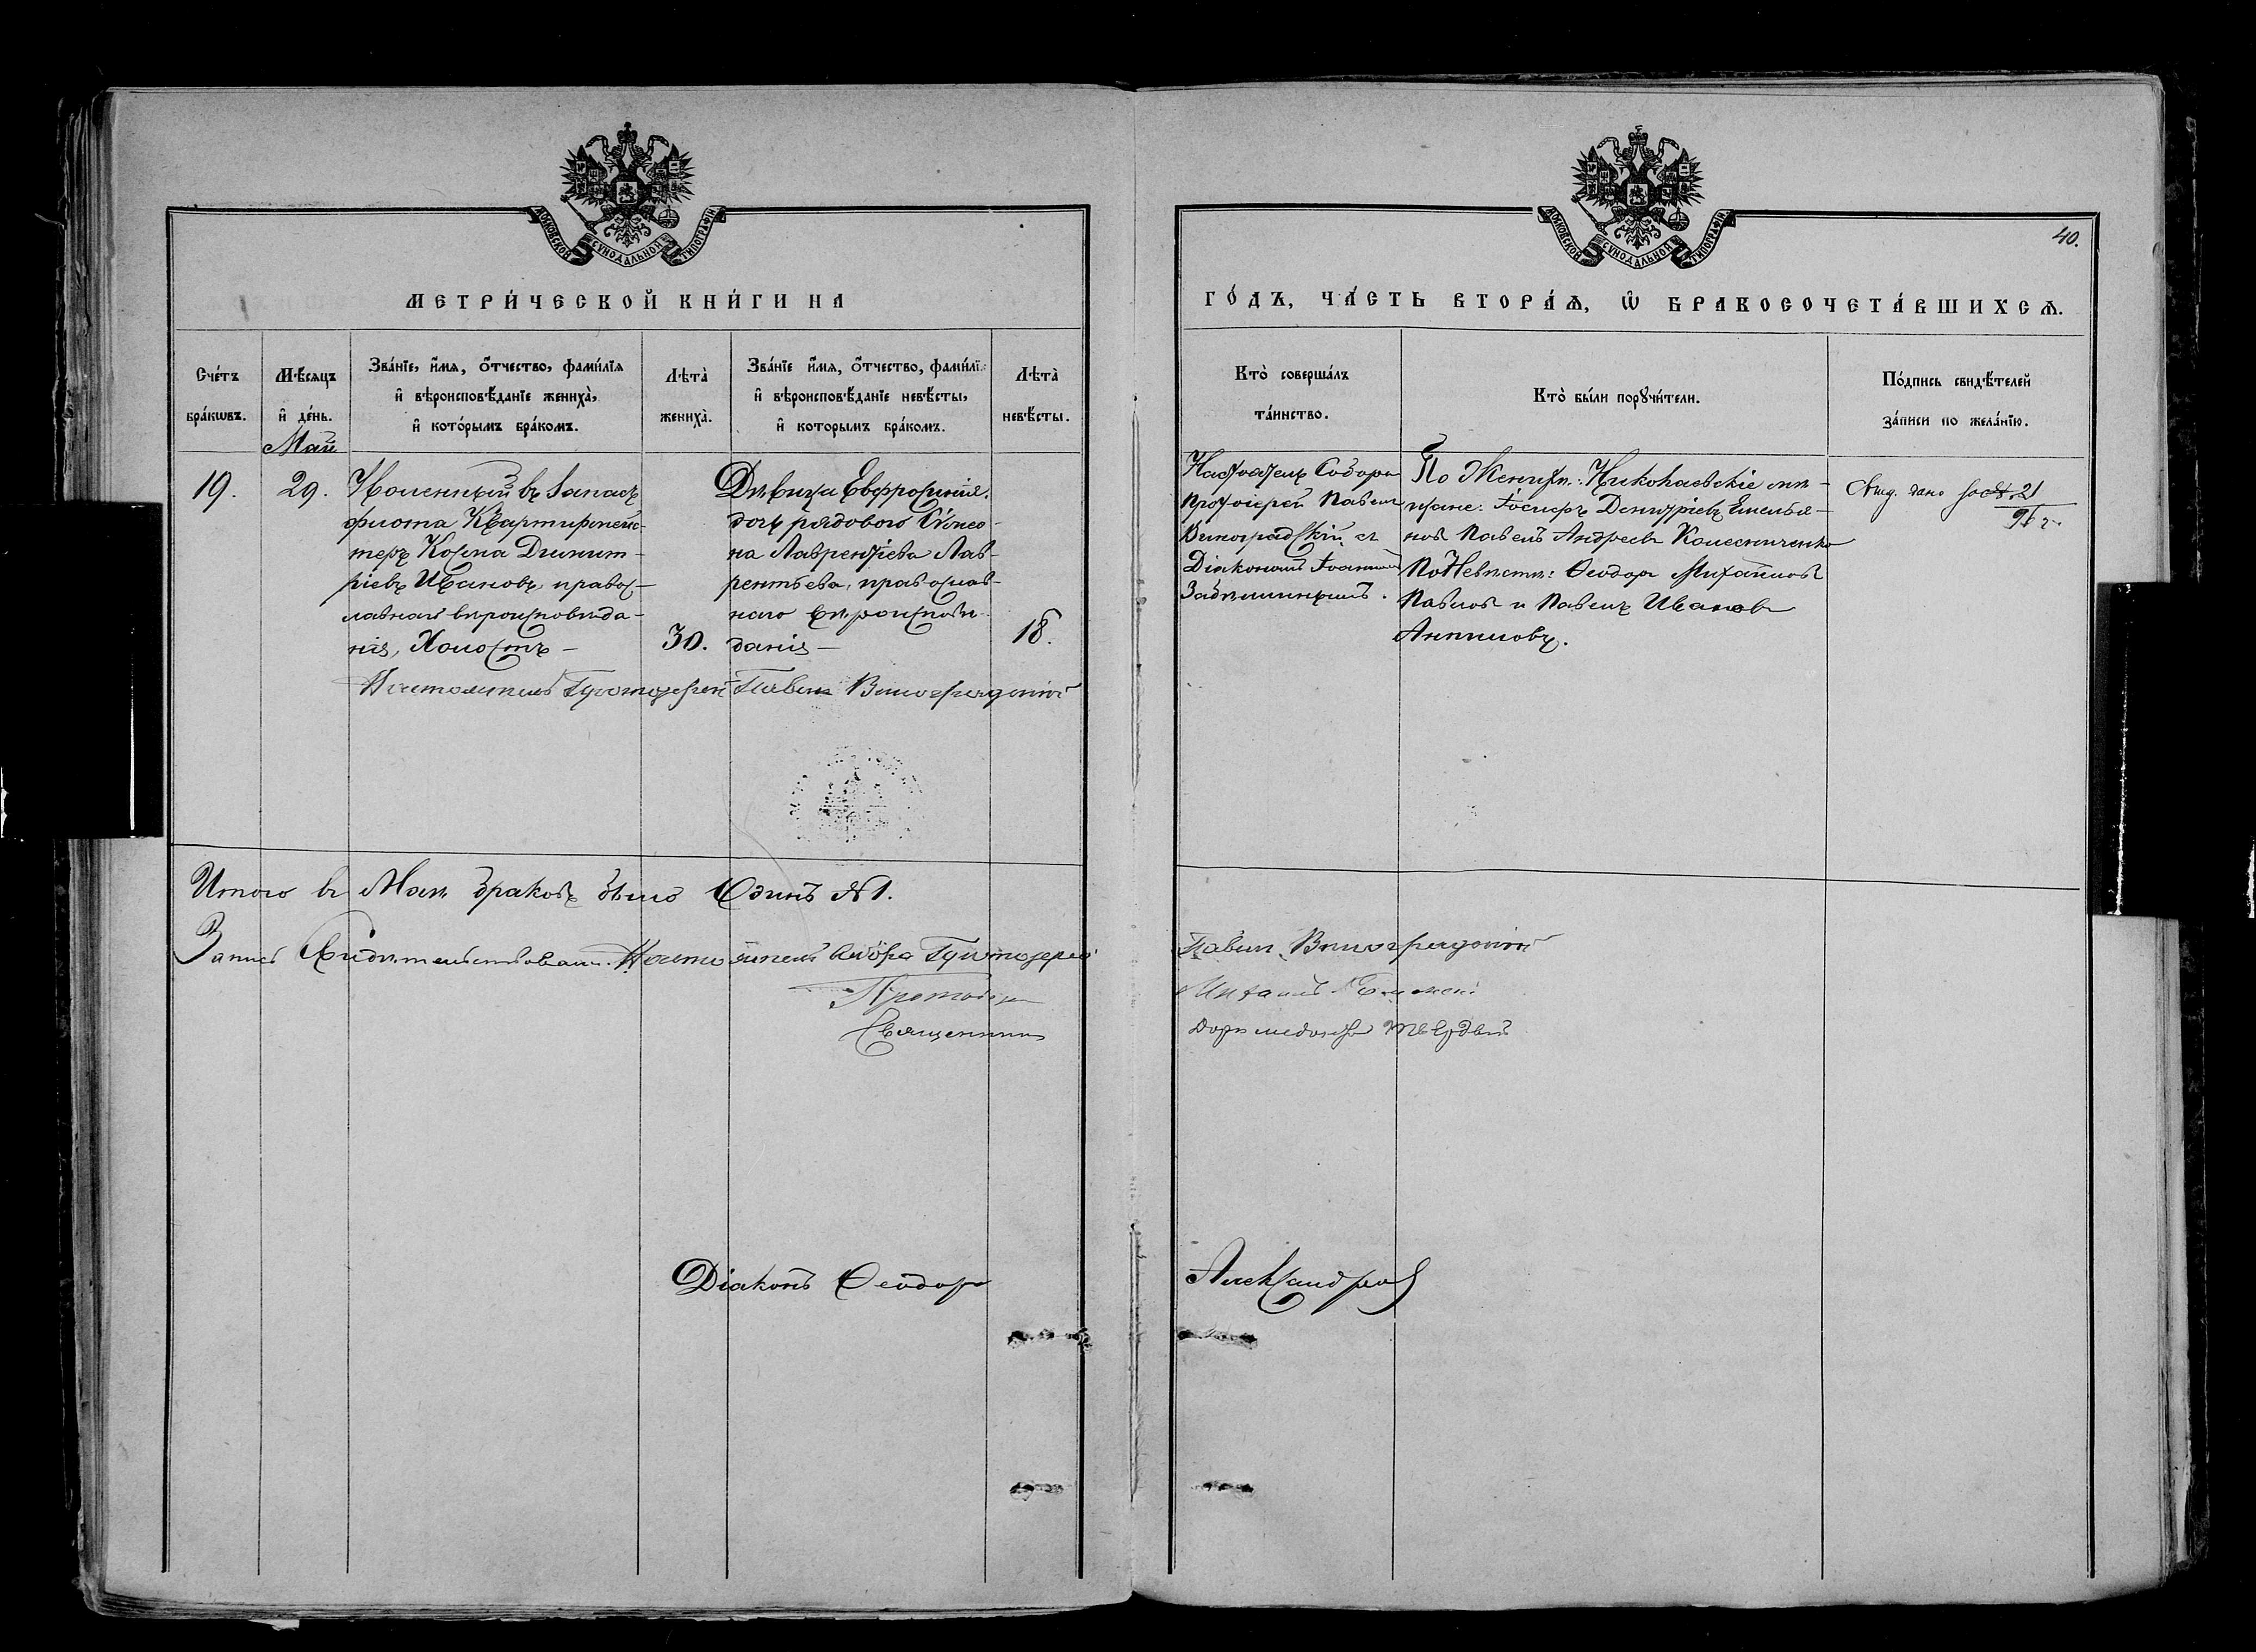 МОСКОВСКОЙ СУНОДАЛЬНОЙ ТИПОГРАФІИ
МЕТРИ́ЧЕСКОЙ КНИ́ГИ НА
Сче́тъ бра́кωвъ.
Мѣ́сяцъ и҆ де́нь.
Зва́нїе, и҆́мѧ, ѻ҆́тчество, фами́лїѧ
и҆ вѣроисповѣ́данїе женихà,
и҆ кото́рымъ бра́комъ.
Лѣтà женихà.
Зва́нїе и҆́мѧ, ѻ҆́тчество, фами́лїѧ
и҆ вѣроисповѣ́данїе невѣ́сты,
и҆ которымъ бра́комъ.
Лѣтà невѣ́сты.
Май
19.
29.
Уволенный въ запасъ
флота Квартирмейс-
теръ Косма Димит-
ріевъ Ивановъ, правос-
лавнаго вѣроисповѣда-
нія, Холостъ —
30.
Дѣвица Евфросинія
дочь рядового Симео-
на Лаврентіева Лав-
рентьева, православ-
наго вѣроисповѣ-
данія —
18.
Настоятель Протоіерей Павелъ Виноградскій
Итого въ Маѣ браковъ было Одинъ №1.
Запись Свидѣтельствовали: Настоятель Собора Протоіерей
Протоіер
Священникъ
Діаконъ Ѳеодоръ
МОСКОВСКОЙ СУНОДАЛЬНОЙ ТИПОГРАФІИ
40.
ГО́ДЪ, ЧА́СТЬ ВТОРА́Ѧ, Ѽ БРАКОСОЧЕТА́ВШИХСѦ.
Кто̀ соверша́лъ
та́инство.
Кто̀ бы́ли порꙋчи́тели.
По́дпись свидѣ́телей
за́писи по жела́нїю.
Настоятель Собора
Протоіерей Павелъ
Виноградскій съ
Діакономъ Іоанномъ
По Женихѣ: Николаевскіе мѣ-
щане: Іосифъ Димитріевъ Емелья-
новъ Павелъ Андреевъ Колесниченко
По Невѣстѣ: Ѳеодоръ Михайловъ
Павловъ и Павелъ Ивановъ
Анпиловъ.
Свид. дано 21
96 г.
Павелъ Виноградскій
Михаилъ
Доримедонтъ Твердый
Александровъ